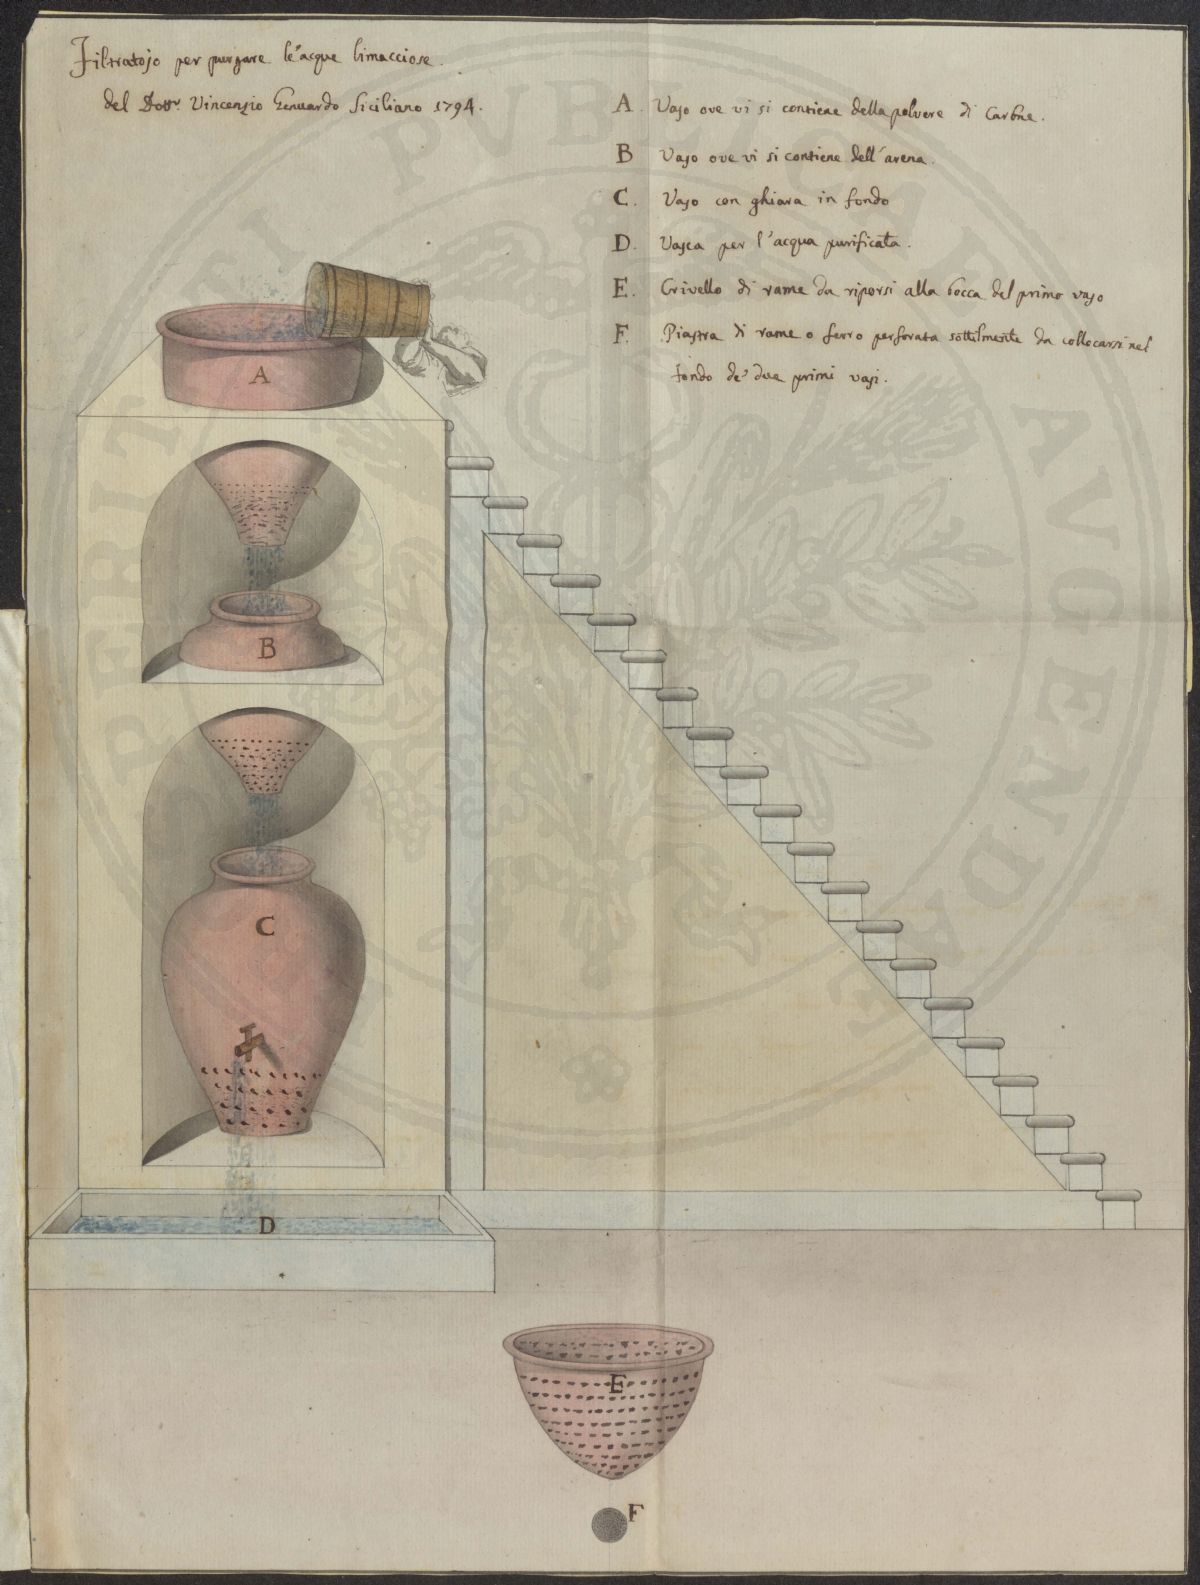 Filtratojo per purgare le acque limacciose.
del Dott.r Vincenzio Genuardo Siciliano 1794.
A. Vaso ove vi si contiene della polvere di Carbne.
B Vaso ove vi si contiene dell'arena.
C. Vaso con ghiara in fondo
D. Vasca per l'acqua purificata.
E. Crivello di rame da riporsi alla bocca del primo vaso
F. Piastra di rame o ferro perforata sottilmente da collocarsi nel
fondo de' due primi vasi.
A
B
C
D
E
F
PERITI PVBLICAE AVGENDAE